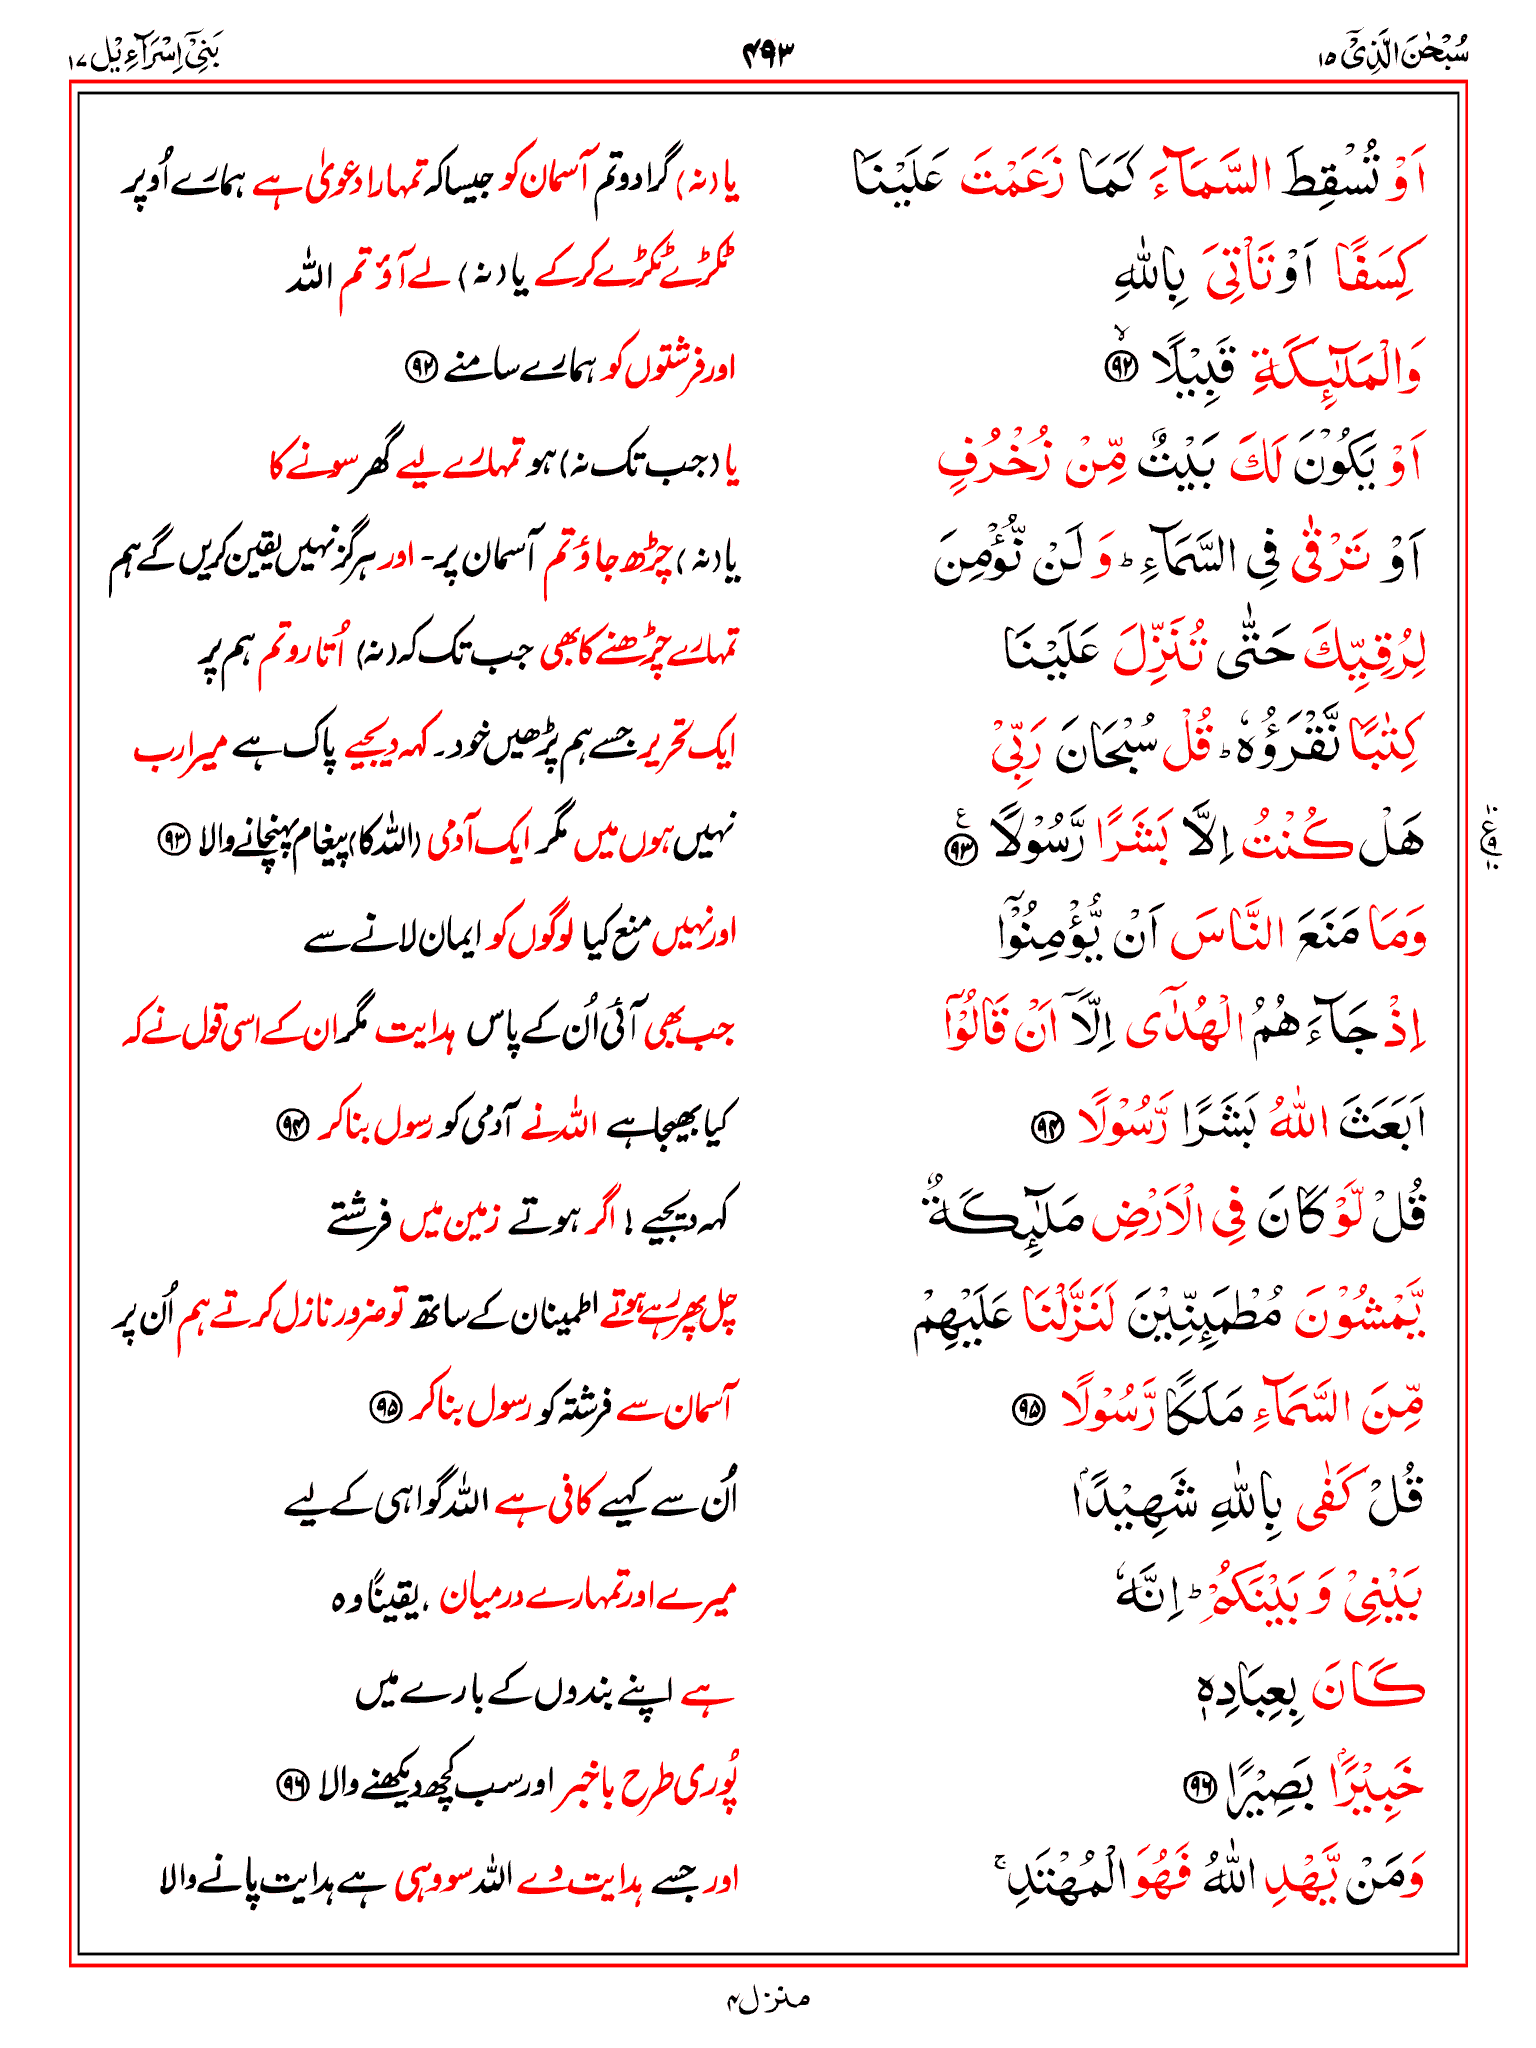 سُبْحٰنَ الَّذِیْۤ ۱۵ ۴۹۳ بَنِیْۤ اِسْرَآءِیْل ۱۷
اَوْ تُسْقِطَ السَّمَآءَ كَمَا زَعَمْتَ عَلَیْنَا یا (نہ) گرا دو تم آسمان کو جیسا کہ تمہارا دعویٰ ہے ہمارے اُوپر
كِسَفًا اَوْ تَاْتِیَ بِاللّٰهِ ٹکڑے ٹکڑے کرکے یا (نہ) لے آؤ تم اللہ
وَالْمَلٰٓىِٕكَةِ قَبِیْلًا ۙ﴿۹۲﴾ اور فرشتوں کو ہمارے سامنے ﴿۹۲﴾
اَوْ یَكُوْنَ لَكَ بَیْتٌ مِّنْ زُخْرُفٍ یا (جب تک نہ) ہو تمہارے لیے گھر سونے کا
اَوْ تَرْقٰی فِی السَّمَآءِ ؕ وَ لَنْ نُّؤْمِنَ یا (نہ) چڑھ جاؤ تم آسمان پر۔ اور ہرگز نہیں یقین کریں گے ہم
لِرُقِیِّكَ حَتّٰی تُنَزِّلَ عَلَیْنَا تمہارے چڑھنے کا بھی جب تک کہ (نہ) اُتارو تم ہم پر
كِتٰبًا نَّقْرَؤُهٗ ؕ قُلْ سُبْحَانَ رَبِّیْ ایک تحریر جسے ہم پڑھیں خود۔ کہہ دیجیے پاک ہے میرا رب
هَلْ كُنْتُ اِلَّا بَشَرًا رَّسُوْلًا ﴿۹۳﴾ ع نہیں ہوں میں مگر ایک آدمی (اللہ کا) پیغام پہنچانے والا ﴿۹۳﴾
۱۰ ع ۹ ۱۰
وَمَا مَنَعَ النَّاسَ اَنْ یُّؤْمِنُوْۤا اور نہیں منع کیا لوگوں کو ایمان لانے سے
اِذْ جَآءَهُمُ الْهُدٰۤی اِلَّاۤ اَنْ قَالُوْۤا جب بھی آئی اُن کے پاس ہدایت مگر ان کے اسی قول نے کہ
اَبَعَثَ اللّٰهُ بَشَرًا رَّسُوْلًا ﴿۹۴﴾ کیا بھیجا ہے اللہ نے آدمی کو رسول بنا کر ﴿۹۴﴾
قُلْ لَّوْ كَانَ فِی الْاَرْضِ مَلٰٓىِٕكَةٌ کہہ دیجیے! اگر ہوتے زمین میں فرشتے
یَّمْشُوْنَ مُطْمَىِٕنِّیْنَ لَنَزَّلْنَا عَلَیْهِمْ چل پھر رہے ہوتے اطمینان کے ساتھ تو ضرور نازل کرتے ہم اُن پر
مِّنَ السَّمَآءِ مَلَكًا رَّسُوْلًا ﴿۹۵﴾ آسمان سے فرشتہ کو رسول بنا کر ﴿۹۵﴾
قُلْ كَفٰی بِاللّٰهِ شَهِیْدًۢا اُن سے کہیے کافی ہے اللہ گواہی کے لیے
بَیْنِیْ وَ بَیْنَكُمْ ؕ اِنَّهٗ میرے اور تمہارے درمیان، یقیناً وہ
كَانَ بِعِبَادِهٖ ہے اپنے بندوں کے بارے میں
خَبِیْرًۢا بَصِیْرًا ﴿۹۶﴾ پُوری طرح باخبر اور سب کچھ دیکھنے والا ﴿۹۶﴾
وَمَنْ یَّهْدِ اللّٰهُ فَهُوَ الْمُهْتَدِ ۚ اور جسے ہدایت دے اللہ سو وہی ہے ہدایت پانے والا
منزل ۴